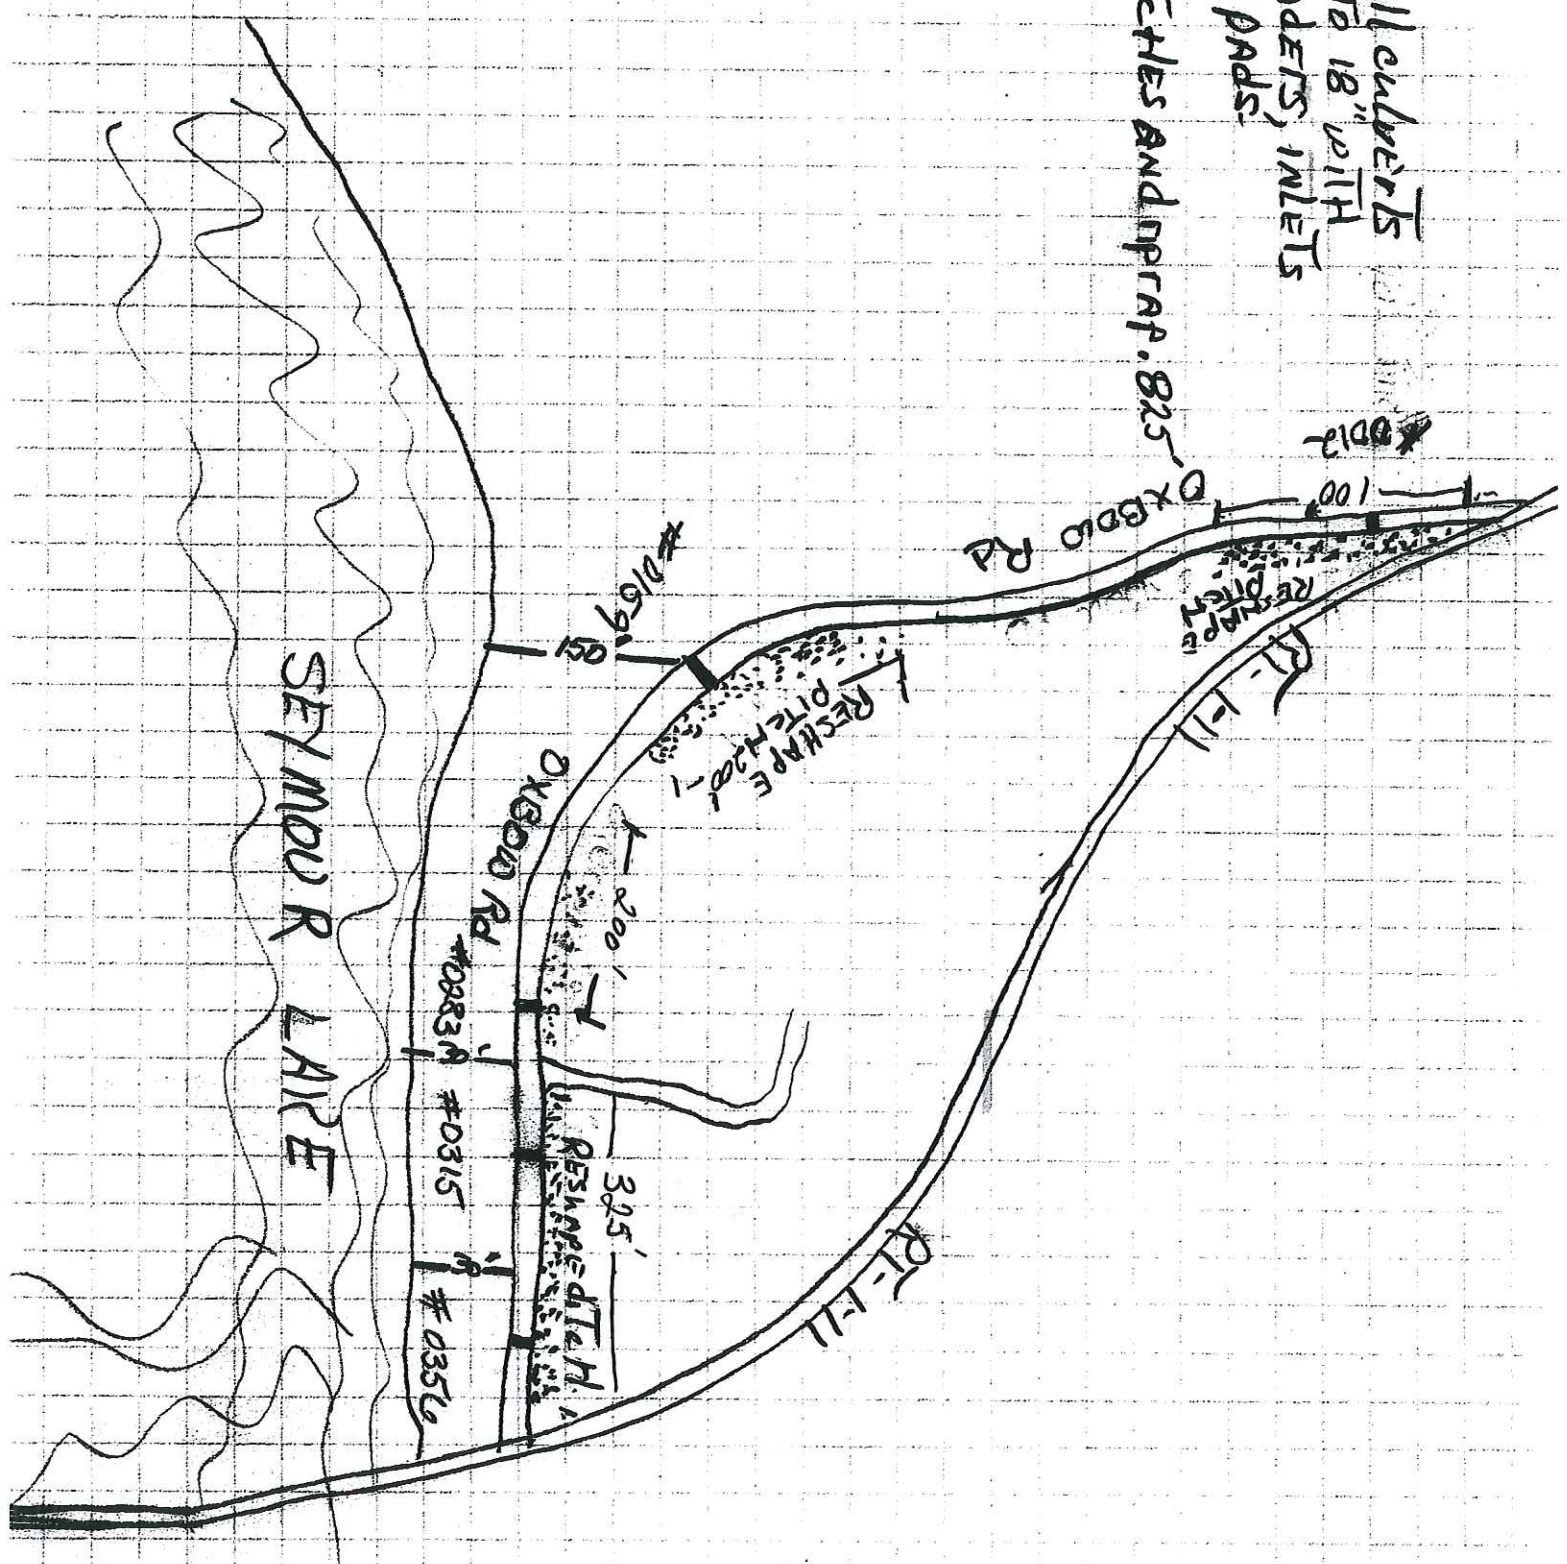 ll culverts
To 18" with
ders, inlets
pads.
ches and riprap. 825'
#0012
100'
Reshape
Ditch
OxBow Rd
RT-111
#0159
150'
Reshape
Ditch 200'
OxBow Rd
200'
#0283
#0315
325'
Reshape ditch
#0356
RT-111
SEYMOUR LAKE